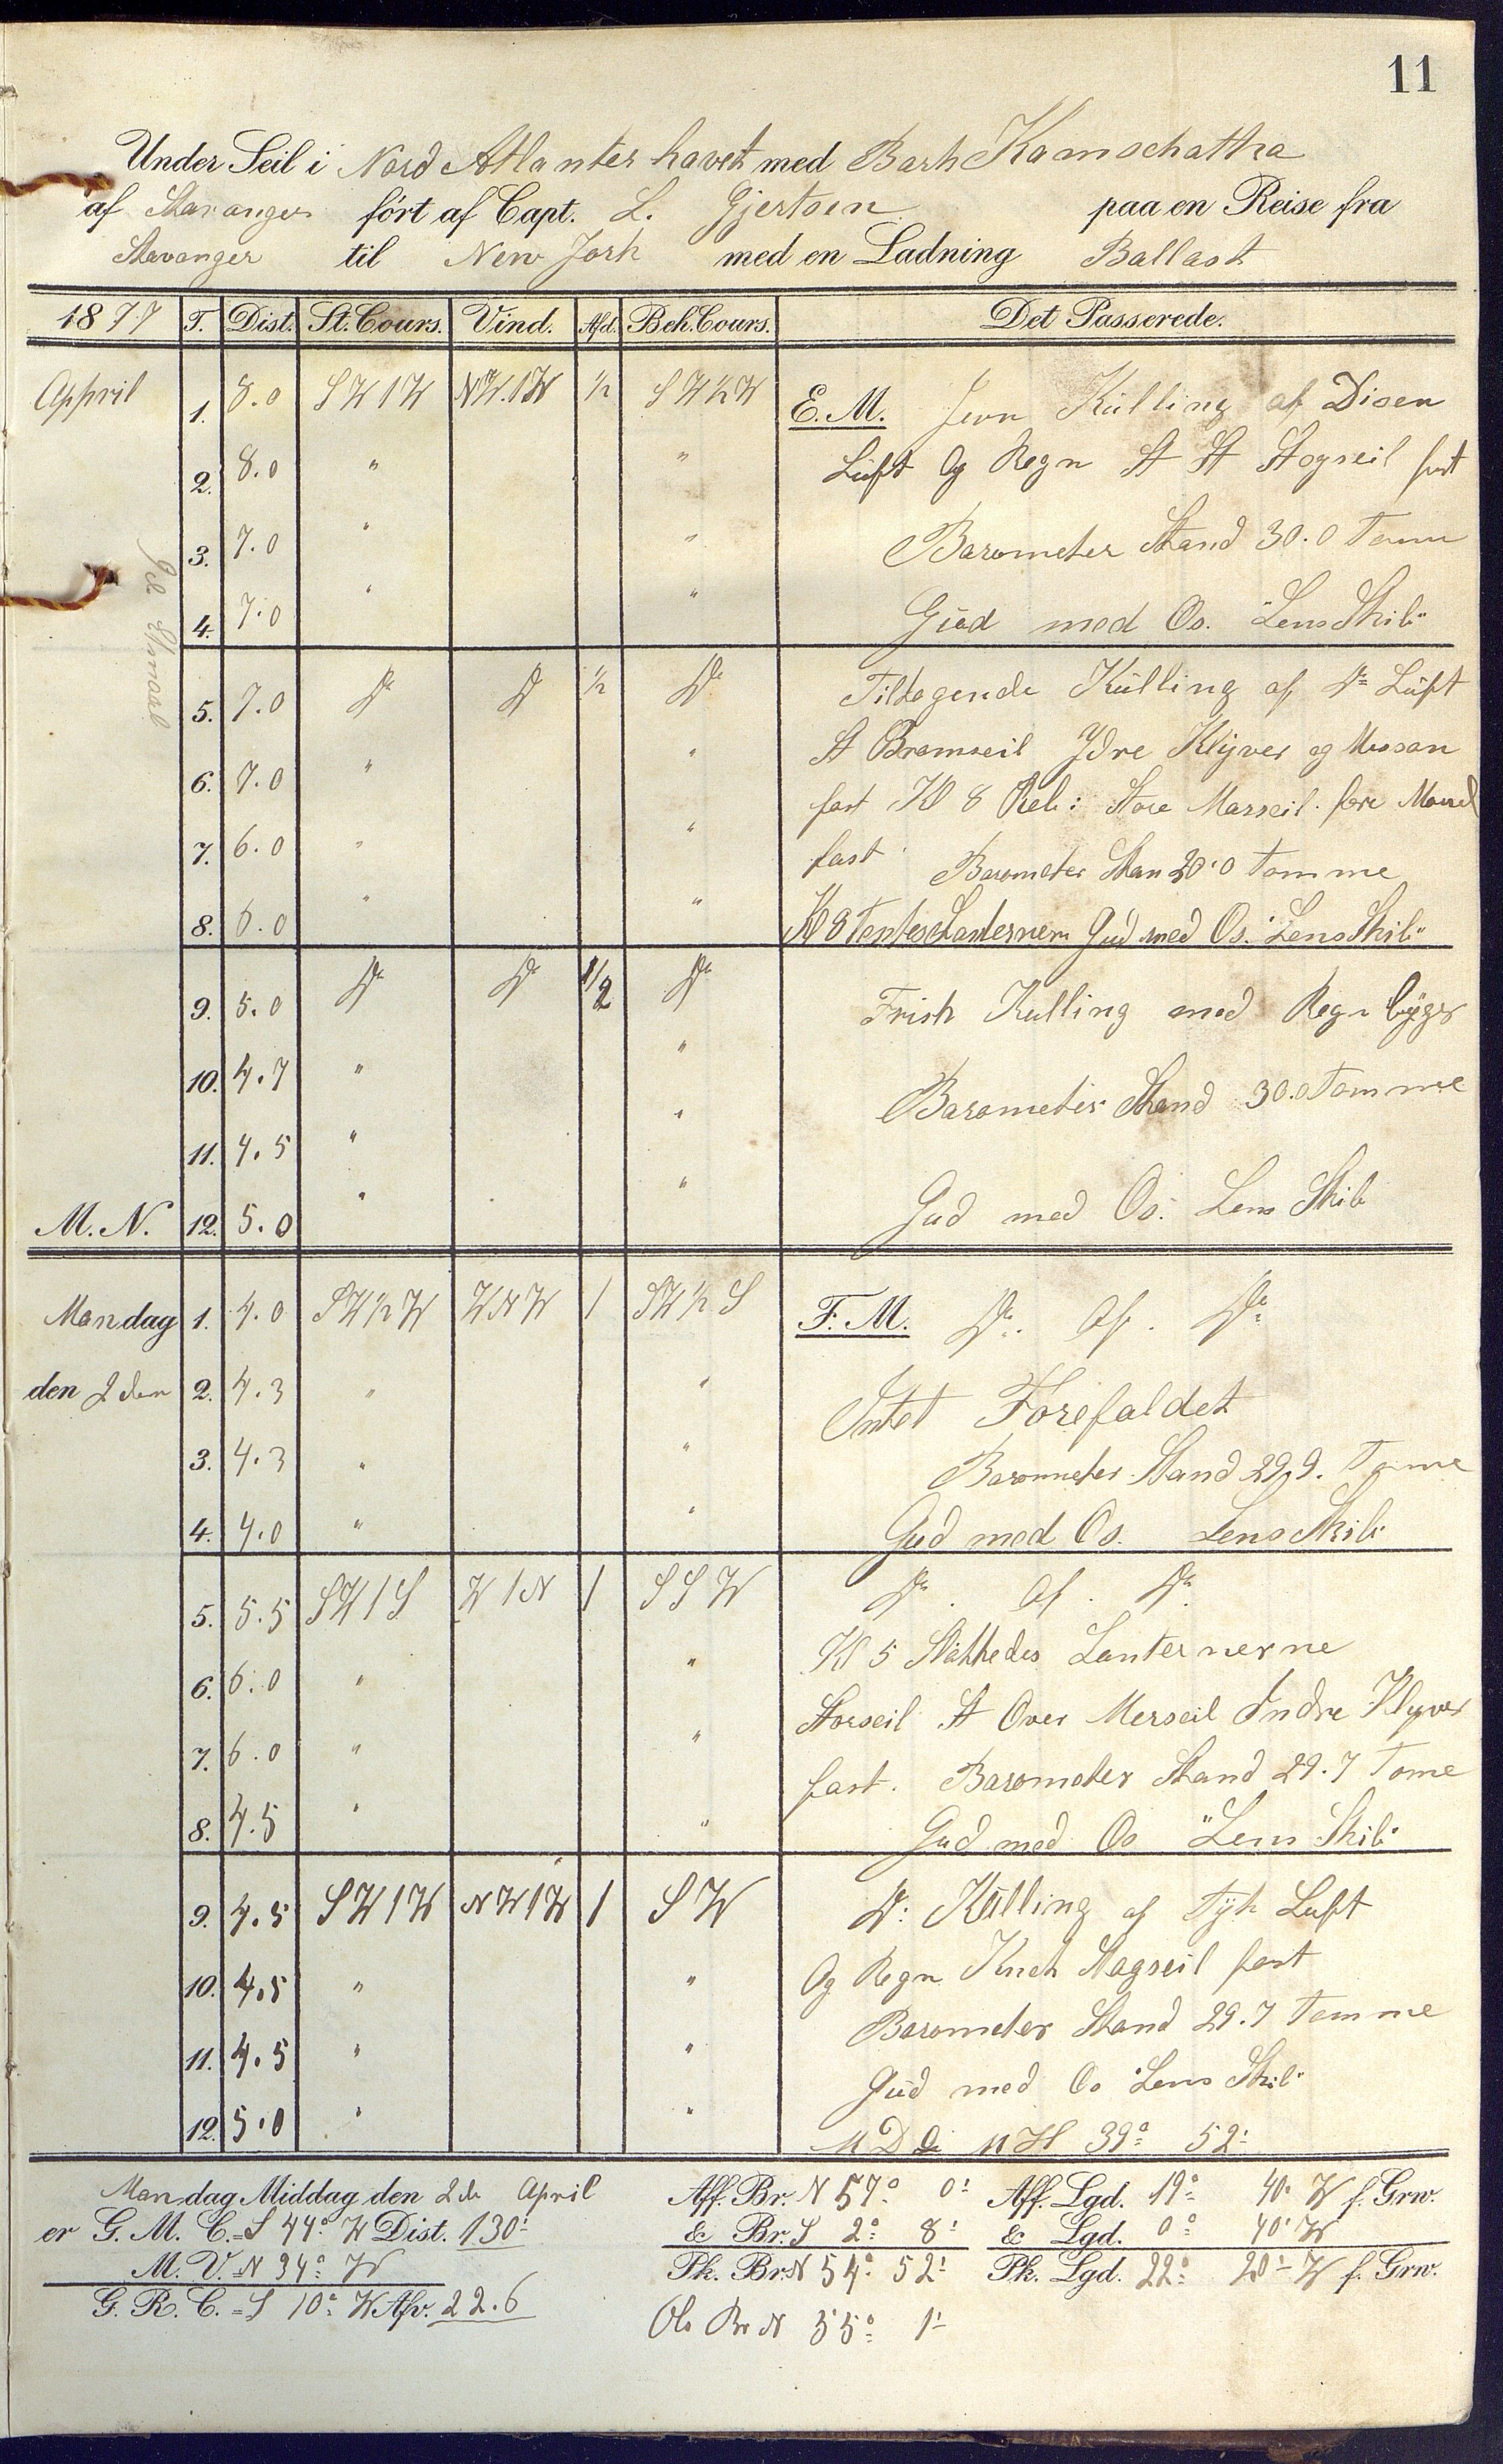 11
Under Seil i Nord Atlanter havet med Bark Kamschatka
af Stavanger ført af Capt. L. Gjertsen paa en Reise fra
Stavanger til New York med en Ladning Ballast
1877 T. Dist. St. Cours. Vind. Afd. Beh. Cours. Det Passerede.
April 1. 8.0 SW1W NW.1W ½ SW½W E.M. Jevn Külling af Disen
2. 8.0 " " Lüft Og Regn St St Stagseil fast
3. 7.0 " " Barometer Stand 30.0 Tomm
4. 7.0 " " Güd med Os. "Lens Skib"
5. 7.0 Do Do ½ Do Tiltagende Külling af Do Lüft
St Bramseil Ydre Klyver og Mesan
6. 7.0 " "
fast Kl 8 Reb: Store Merseil. fore
7. 6.0 " " fast Barometer Stan 30.0 Tomme
8. 6.0 " " Kl 8 Tentes Lanternern Gud med Os. "Lens Skib"
9. 5.0 Do Do 1/2 Do Frisk Kulling med Regn byger
10. 4.7 " " Barometer Stand 30.0 Tomme
11. 4.5 " "
M.N. 12. 5.0 " " Gud med Os. Lens Skib
Mandag 1. 4.0 SW½W WNW 1 SW½S F.M. Do. Af. Do
den 2den 2. 4.3 " " Intet Forefaldet
3. 4.3 " " Barometer Stand 29.9. Tomme
4. 4.0 " " Gud med Os. Lens Skib
5. 5.5 SW1S W1N 1 SSW Do. Af. Do.
Kl 5 Slükkedes Lanternerne
6. 6.0 " "
Storseil St Over Merseil Indre Klyver
7. 6.0 " " fast. Barometer Stand 29.7 Tome
8. 4.5 " " Gud med Os "Lens Skib"
9. 4.5 SW1W NW1W 1 SW Do: Külling af Tÿk Luft
10. 4.5 " " Og Regn Stagseil fast
Barometer Stand 29.7 Tomme
11. 4.5 " " Güd med Os "Lens Skib"
12. 5.0 " " 39° 52'
Mandag Middag den 2de April Aff. Br. N 57° 0' Aff. Lgd. 19° 40' W f. Grw.
er G. M. C. = S 44° W Dist. 130' & Br. S 2° 8' & Lgd. 0° 40' W
M. V. = N 34° W Pk. Br. N 54° 52' Pk. Lgd. 22° 20' W f. Grw.
G. R. C. = S 10° W Afv. 22.6
Obs Br N 55° 1'